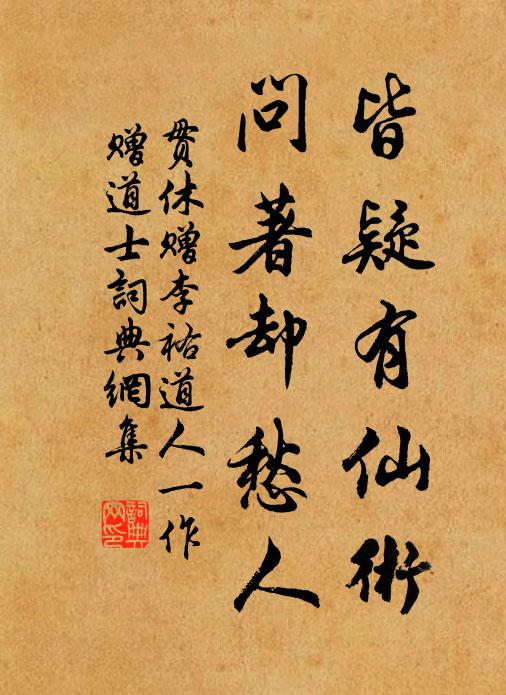 皆疑有仙術
問著却愁人
贯休赠李祐道人一作
赠道士詞典網集
詞典
网印